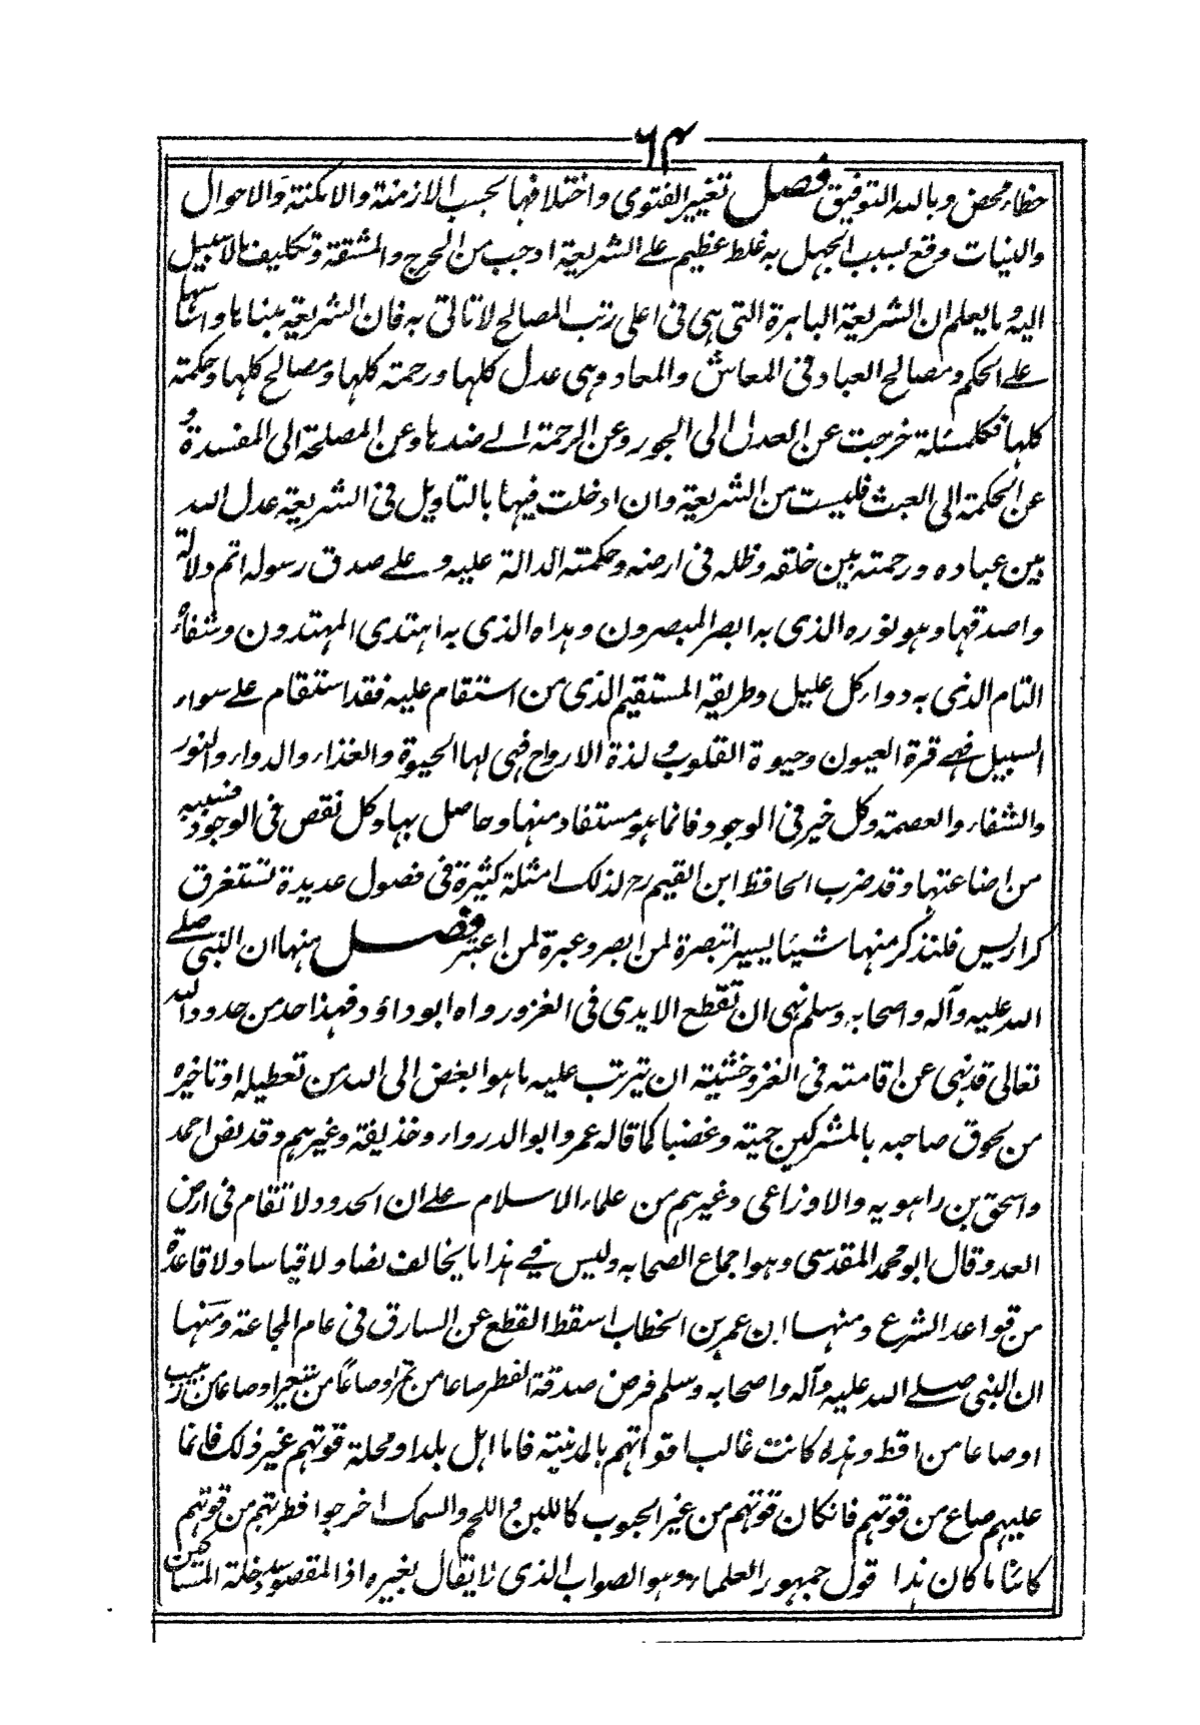 ٦٤
خطاء محض وبالله التوفيق فصل تغيير الفتوى واختلافها بحسب الازمنة والامكنة والاحوال
والنيات وقع بسبب الجهل به غلط عظيم على الشريعة اوجب من الحرج والمشقة وتكليف ما لا سبيل
اليه ما يعلم ان الشريعة الباهرة التى هى فى اعلى رتب المصالح لا تاتى به فان الشريعة مبناها واساسها
على الحكم ومصالح العباد فى المعاش والمعاد وهى عدل كلها ورحمة كلها ومصالح كلها وحكمة
كلها فكل مسئلة خرجت عن العدل الى الجور وعن الرحمة الى ضدها وعن المصلحة الى المفسدة و
عن الحكمة الى العبث فليست من الشريعة وان ادخلت فيها بالتاويل فى الشريعة عدل الله
بين عباده ورحمته بين خلقه وظله فى ارضه وحكمته الدالة عليه وعلى صدق رسوله اتم دلالة
واصدقها وهو نوره الذى به ابصر المبصرون وهداه الذى به اهتدى المهتدون وشفاؤه
التام الذى به دواء كل عليل وطريقه المستقيم الذى من استقام عليه فقد استقام على سواء
السبيل فهى قرة العيون وحيوة القلوب ولذة الارواح فهى لها الحيوة والغذاء والدواء والنور
والشفاء والعصمة وكل خير فى الوجود فانما هو مستفاد منها وحاصل بها وكل نقص فى الوجود فسببه
من اضاعتها وقد ضرب الحافظ ابن القيم رح لذلك امثلة كثيرة فى فصول عديدة تستغرق
كراريس فلنذكر منها شيئا يسيرا تبصرة لمن ابصر وعبرة لمن اعتبر فصل منها ان النبى صلى
الله عليه وآله واصحابه وسلم نهى ان تقطع الايدى فى الغزو رواه ابوداؤد فهذا حد من حدود الله
تعالى قد نهى عن اقامته فى الغزو خشية ان يترتب عليه ما هو ابغض الى الله من تعطيله او تاخيره
من لحوق صاحبه بالمشركين حمية وغضبا كما قاله عمر وابو الدرداء وحذيفة وغيرهم وقد نص احمد
واسحق بن راهويه والاوزاعى وغيرهم من علماء الاسلام على ان الحدود لا تقام فى ارض
العدو وقال ابو محمد المقدسى وهو اجماع الصحابه وليس فى هذا ما يخالف نصا ولا قياسا ولا قاعدة
من قواعد الشرع ومنها ان عمر بن الخطاب اسقط القطع عن السارق فى عام المجاعة ومنها
ان النبى صلى الله عليه وآله واصحابه وسلم فرض صدقة الفطر صاعا من تمر او صاعا من شعير او صاعا من زبيب
او صاعا من اقط وهذه كانت غالب اقواتهم بالمدينة فاما اهل بلد او محلة قوتهم غير ذلك فانما
عليهم صاع من قوتهم فان كان قوتهم من غير الحبوب كاللبن واللحم والسمك اخرجوا فطرتهم من قوتهم
كائنا ما كان هذا قول جمهور العلماء وهو الصواب الذى لا يقال بغيره اذ المقصود سد خلة المساكين